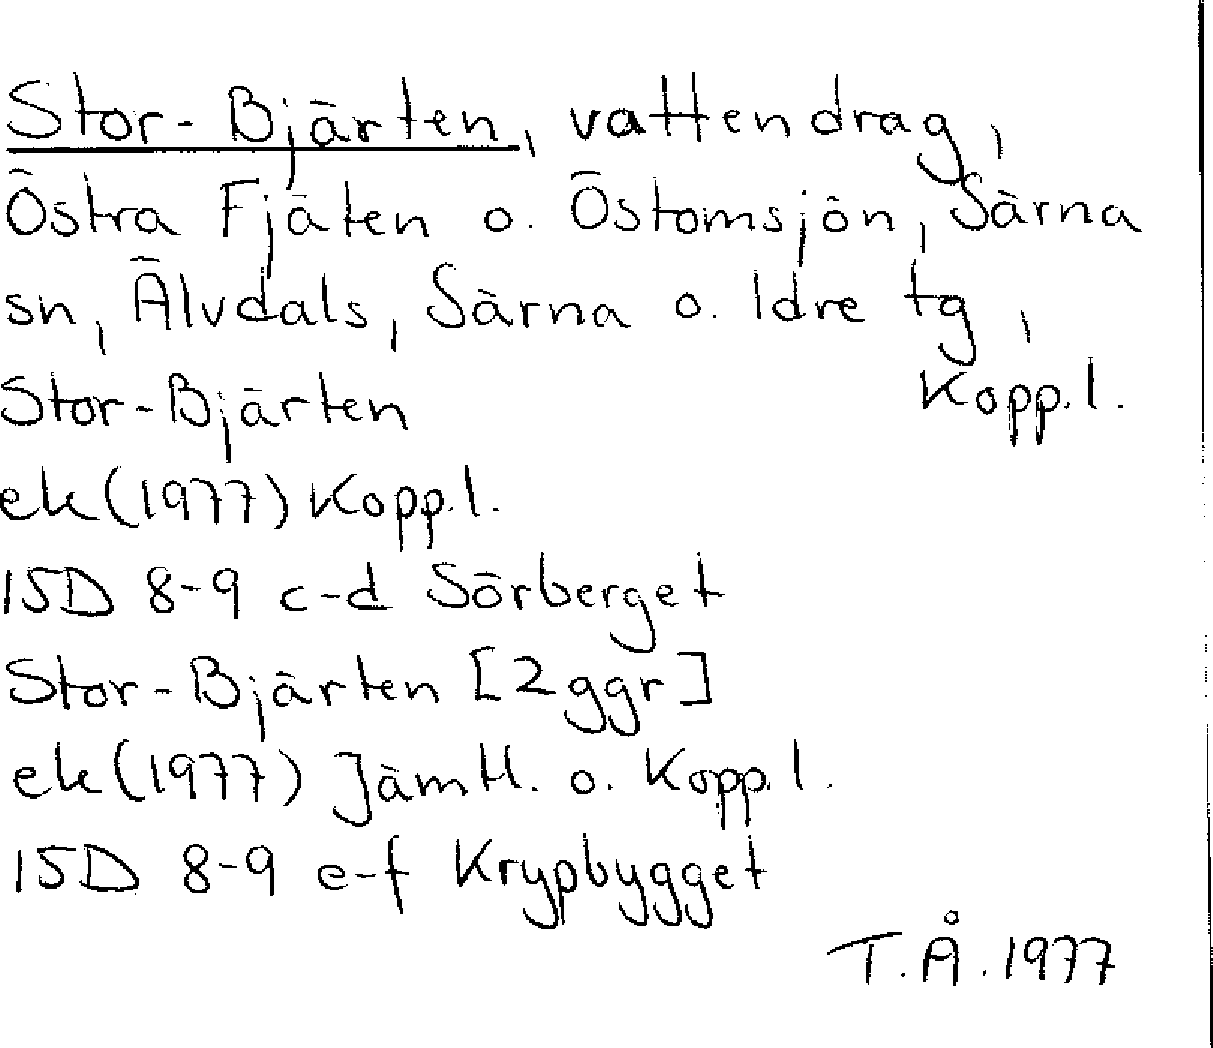 Stor-Bjärten, vattendrag,
Östra Fjäten o. Östomsjön, Särna
sn, Älvdals, Särna o. Idre tg,
Kopp.l.
Stor-Bjärten
ek (1977) Kopp.l.
15D 8-9 c-d Sörberget
Stor-Bjärten [2 ggr]
ek (1977) Jämtl. o. Kopp.l.
15D 8-9 e-f Krypbygget
T.Å. 1977